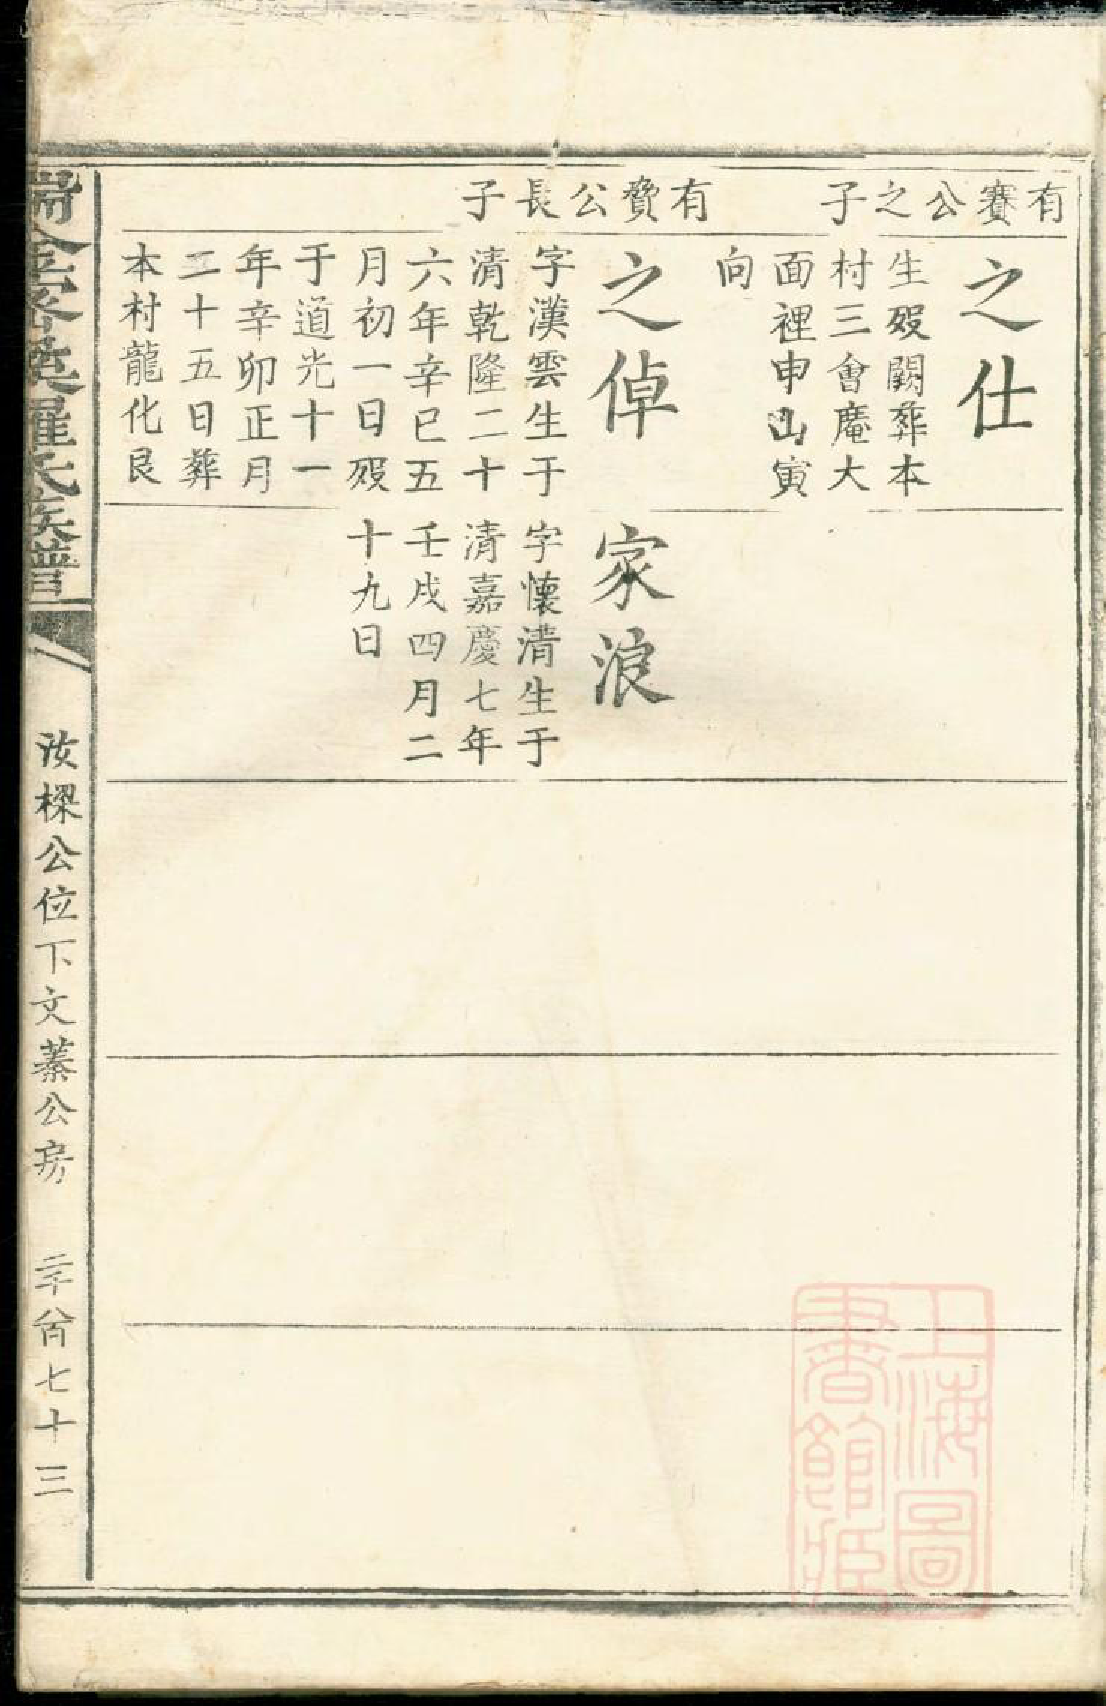 有賽公之子
之仕
生殁闕葬本
村三會庵大
面裡申山寅
向
有贊公長子
之倬
字漢雲生于
清乾隆二十
六年辛巳五
月初一日殁
于道光十一
年辛卯正月
二十五日葬
本村龍化艮
家浪
字懷清生于
清嘉慶七年
壬戌四月二
十九日
羅氏族譜
汝樑公位下文蓁公房
七十三
上海圖
書館藏